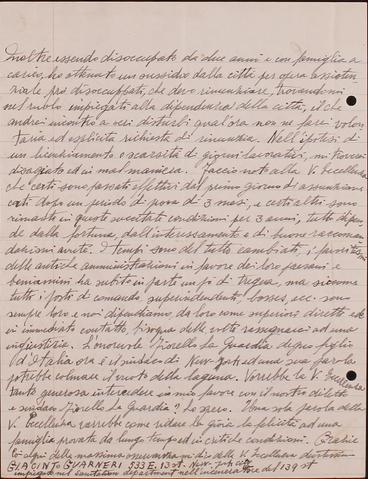 Inoltre essendo disoccupato da due anni e con famiglia a
carico, ho ottenuto un sussidio dalla città per opera assisten
ziale pro disoccupati, che devo rinunziare, trovandomi
nel ruolo impiegati alla dipendenza della città, il che
andrei incontro a seri disturbi qualora non ne farei volon
taria ed esplicita richiesta di rinunzia. Nell'ipotesi di
un licenziamento e scarsità di giorni lavorativi, mi troverei
disagiato ed in mal maniera. Faccio noto alla V. Eccellenza
che certi sono passati effettivi dal primo giorno di assunzione
certi dopo un periodo di prova di 3 mesi, e certi altri sono
rimasti in queste succitate condizioni per 3 anni, tutto dipen
de dalla fortuna, dall'interessamento e di buone raccoman
dazioni avute. I tempi sono del tutto cambiati, i favoritismi
delle antiche amministrazioni in favore dei loro paesani e
beniamini ha subito in parte un po' di tregua, ma siccome
tutti i posti di comando, superindendenti, bosses, ecc. sono
sempre loro e noi dipendiamo da loro come superiori diretti ed
in immediato contatto, bisogna delle volte rassegnarci ad una
ingiustizia. L'onorevole Fiorello La Guardia degno figlio
d'Italia ora è il sindaco di New-York ed una sua parola
potrebbe colmare il vuoto della laguna. Vorrebbe la V. Eccellenza
tanto generosa intercedere in mio favore con il nostro diletto
e sindaco Fiorello La Guardia? Lo spero. Una sola parola della
V. Eccellenza varrebbe come ridare la gioia la felicità ad una
famiglia provata da lungo tempo ed in critiche condizioni. Grazie
Coi sensi della massima osservanza mi dico della V. Eccellenza
GIACINTO GUARNERI 533 E. 13 st. New-York city
impiegato nel sanitation department nell'inceneratore del 139 st